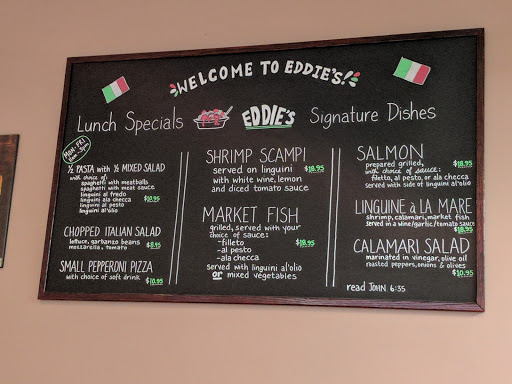 WELCOME TO EDDIE'S!
Lunch Specials
EDDIE'S
Signature Dishes
MON-FRI
½ PASTA with ½ MIXED SALAD
with choice of:
spaghetti with meatballs
spaghetti with meat sauce
linguini al fredo
linguini ala checca
linguini al pesto
linguini al'olio
$10.95
CHOPPED ITALIAN SALAD
lettuce, garbanzo beans
mozzarella, tomato
$8.95
SMALL PEPPERONI PIZZA
with choice of soft drink
$10.95
SHRIMP SCAMPI
served on linguini $18.95
with white wine, lemon
and diced tomato sauce
MARKET FISH
grilled, served with your
choice of sauce:
-filleto
-al pesto
-ala checca
$18.95
served with linguini al'olio
or mixed vegetables
SALMON
prepared grilled, $18.95
with choice of sauce:
filetto, al pesto, or ala checca
served with side of linguini al'olio
LINGUINE à LA MARE
shrimp, calamari, market fish
served in a wine/garlic/tomato
$18.95
CALAMARI SALAD
marinated in vinegar, olive oil
roasted peppers, onions & olives
$10.95
read JOHN 6:35